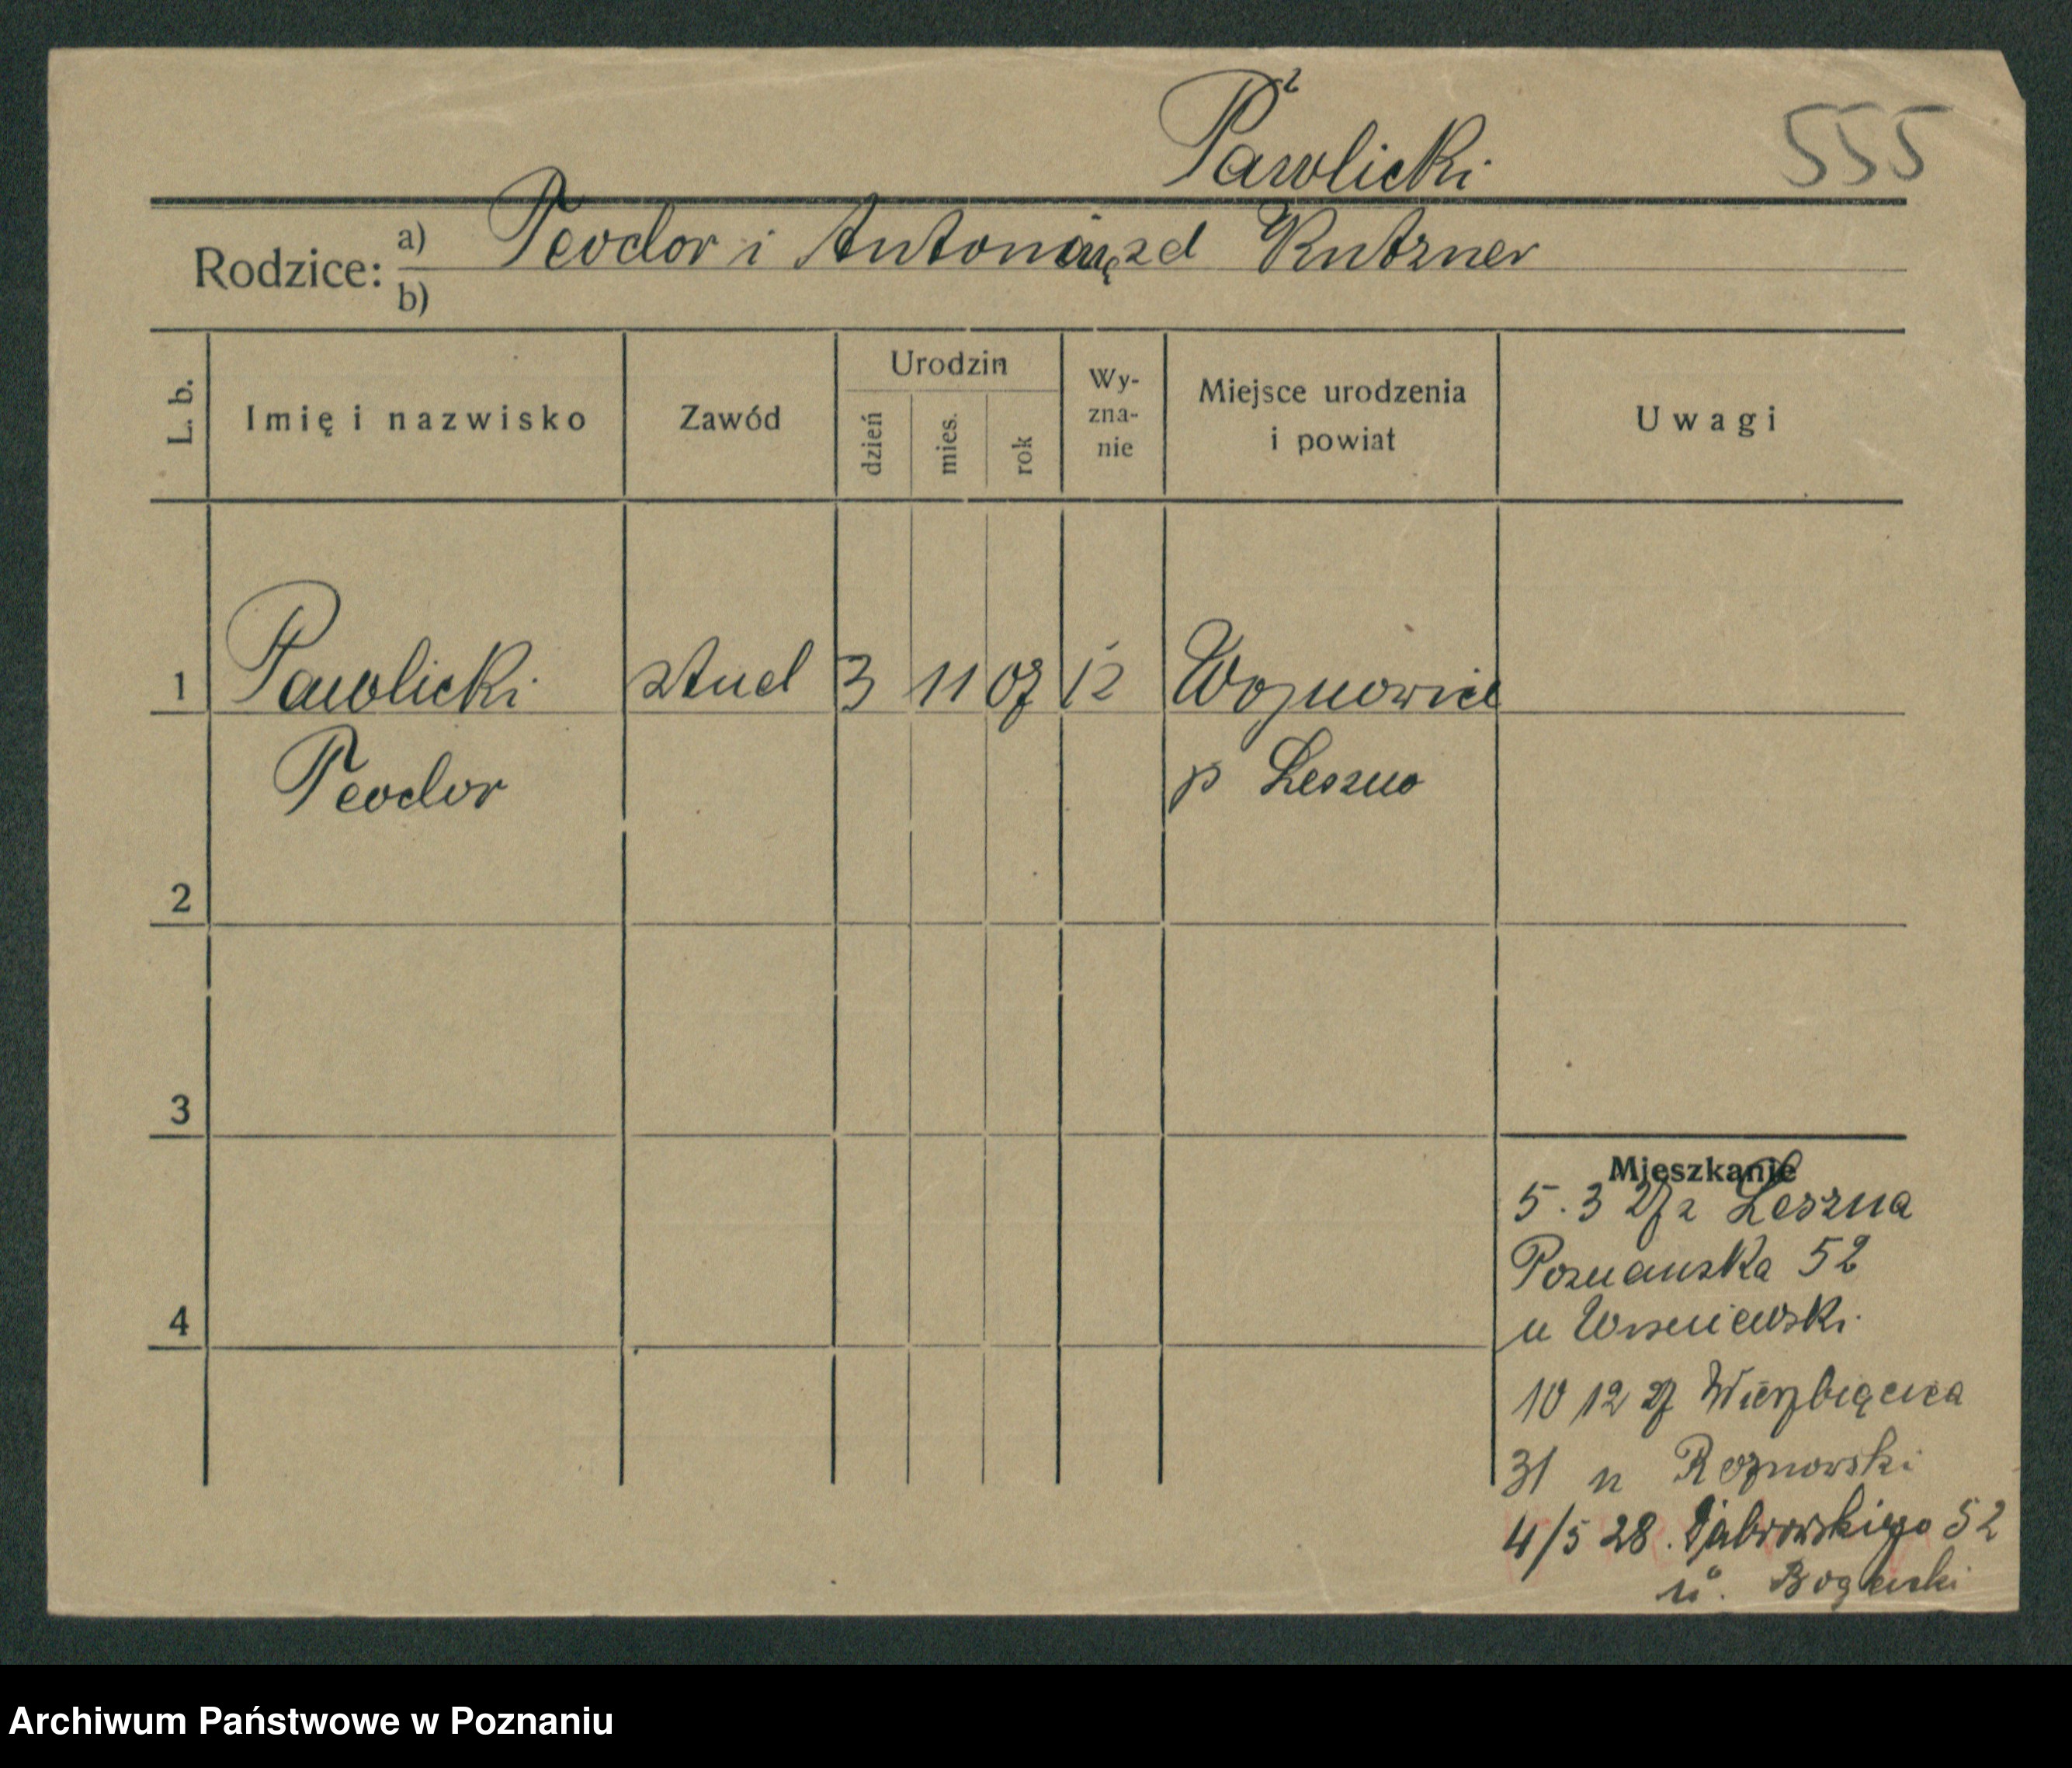 Pawlicki
555
Rodzice: a) Teodor i Antonina zd Kutzner
b)
L. b.
Imię i nazwisko
Zawód
Urodzin
dzień
mies.
rok
Wy-
zna-
nie
Miejsce urodzenia
i powiat
Uwagi
1 Pawlicki stud 3 11 07 Wojnowice
Teodor p Leszno
2
3
4
Mieszkanie
5.3 27 z Leszna
Poznanska 52
u Wisniewski
10 12 27 Wierzbięcica
31 u Roznowski
4/5 28. Dąbrowskiego 52
u.
Archiwum Państwowe w Poznaniu